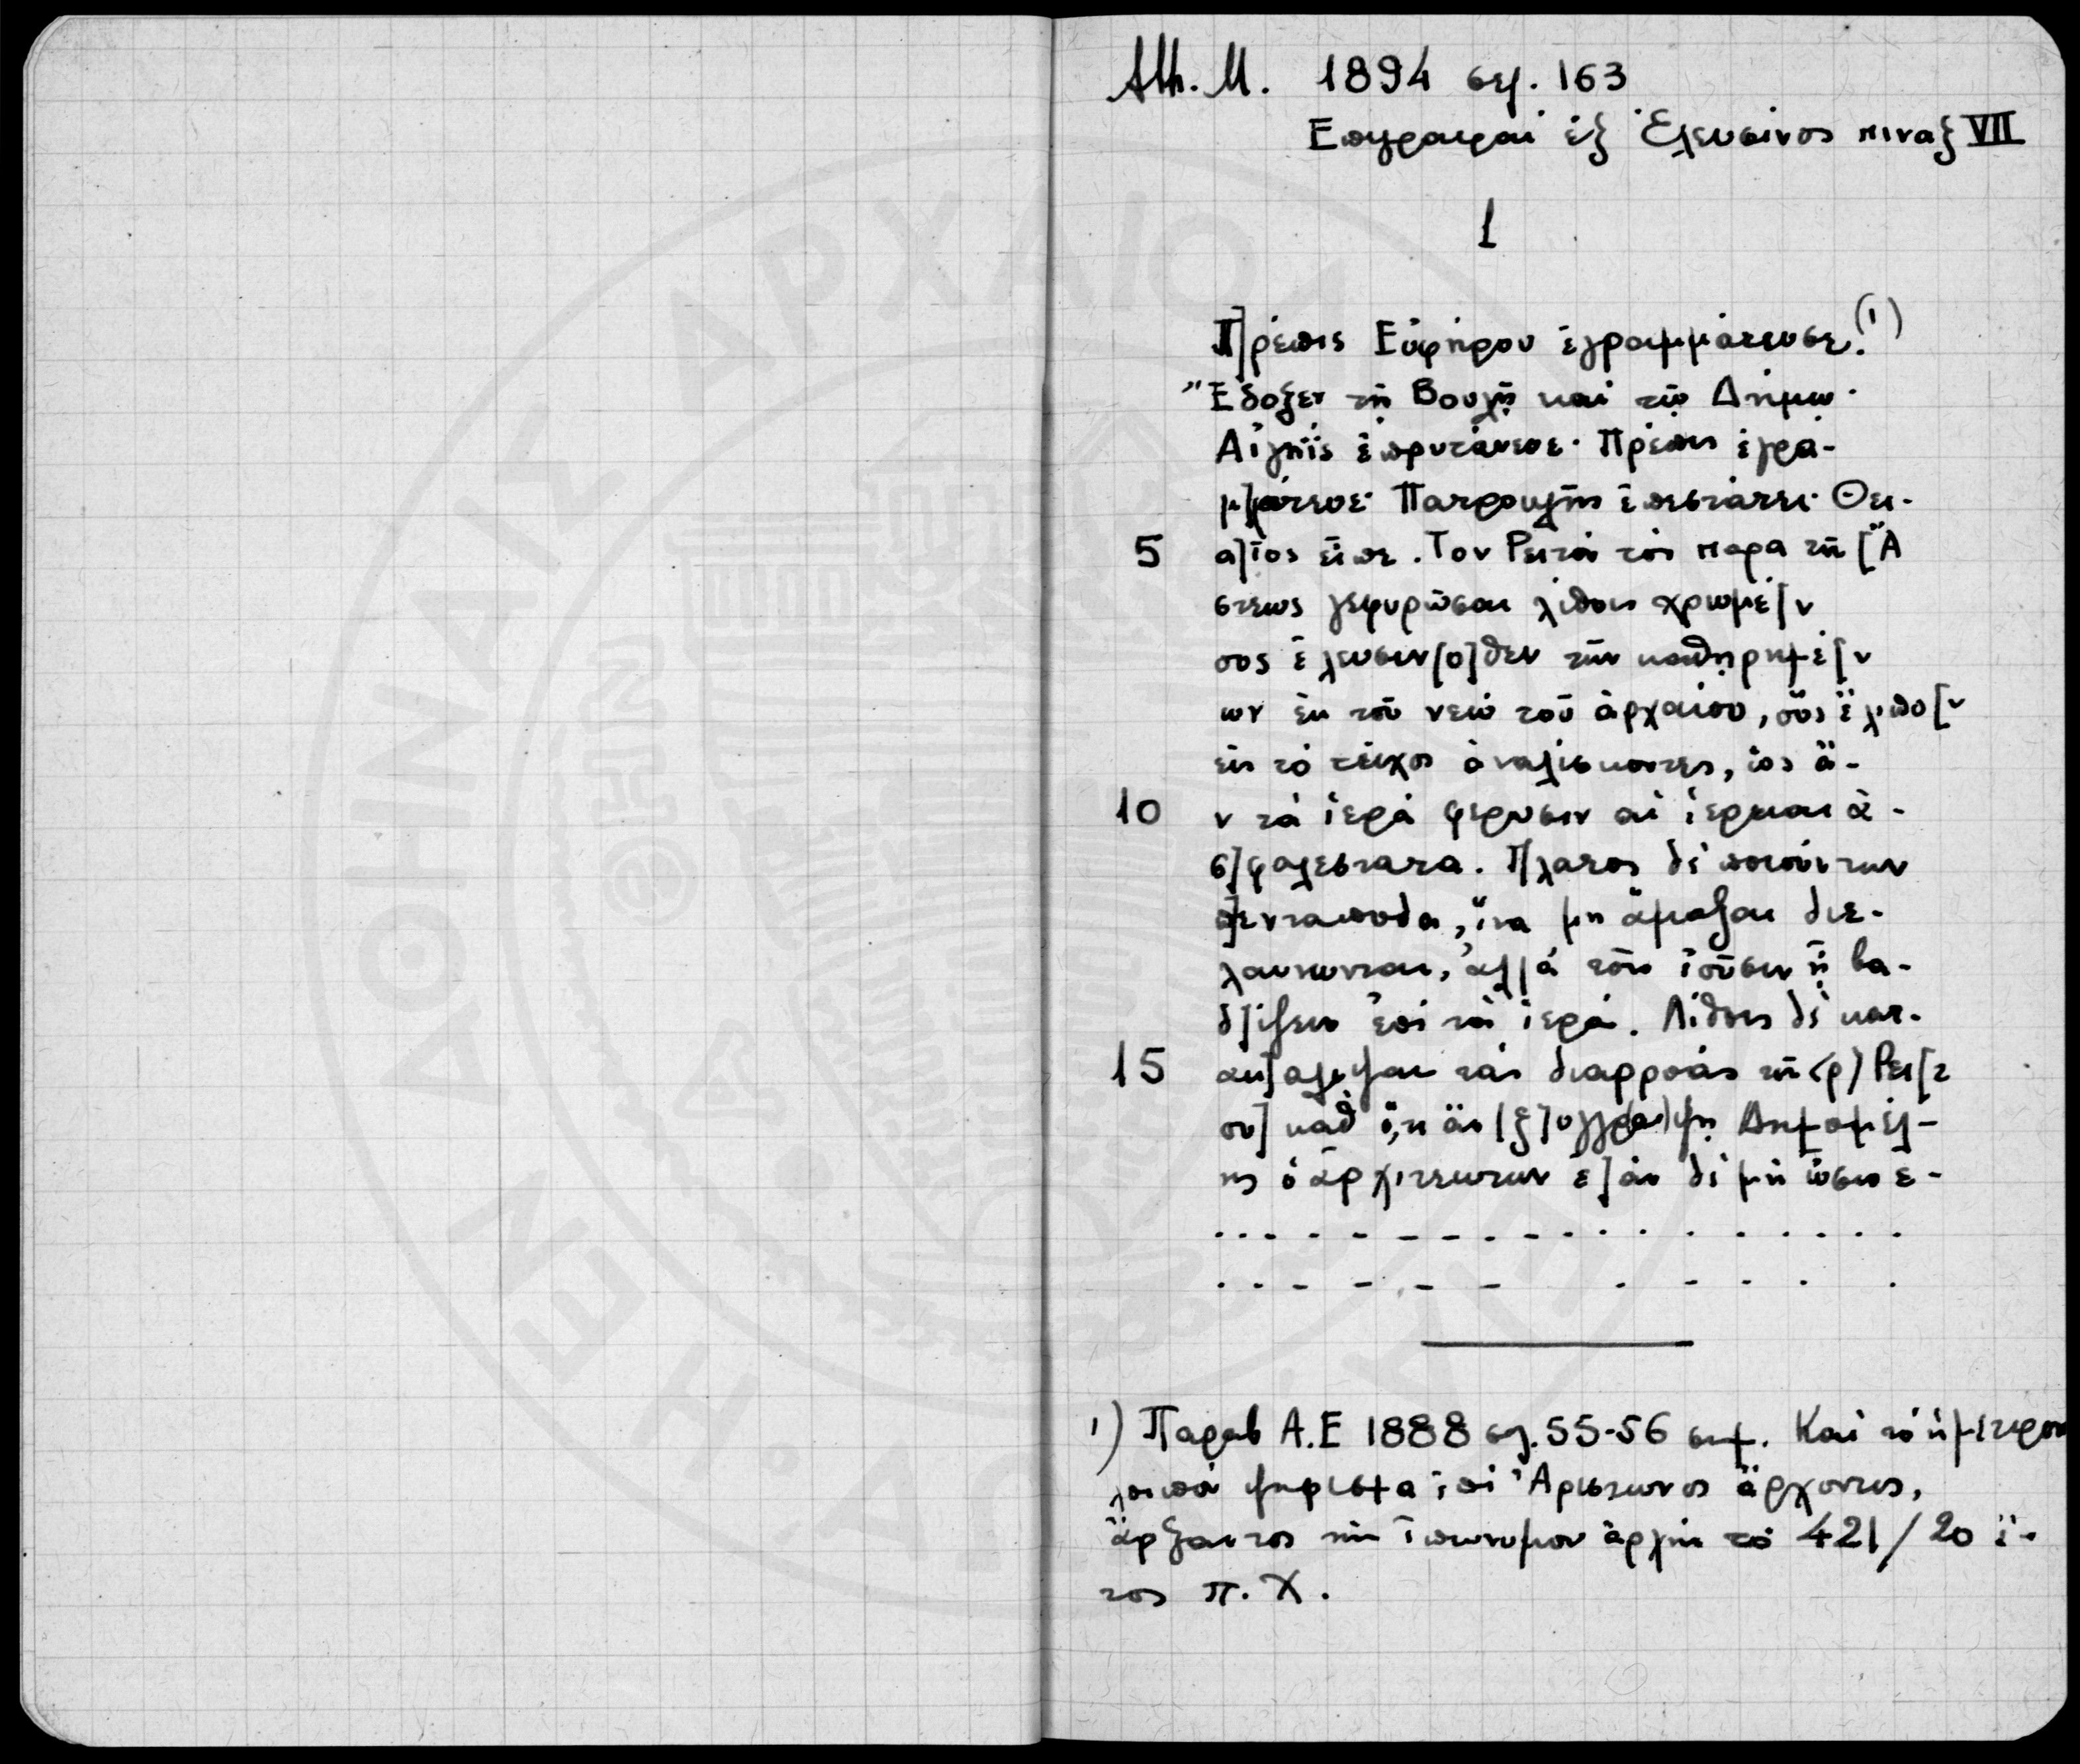 Ath. M. 1894 σελ. 163
Επιγραφαί ἐξ Ἐλευσίνος πιναξ VII
1
Π]ρέπις Εὐφήρου ἐγραμμάτευσε.(1)
Ἔδοξεν τῇ Βουλῇ καί τῷ Δήμω·
Αἰγηΐς ἐπρυτάνευε· Πρέπις ἐγρα-
μ]μάτευε· Πατροκλῆς ἐπεστάτει· Θει-
5 α]ῖος εἶπε. Τον Ρειτόν τόν παρα τῆ [Ἄ
στεως γεφυρῶσαι λίθοις χρωμέ[ν
ους ἐλευσιν[ο]θεν τῶν καθῃρημέ[ν
ων ἐκ τοῦ νεώ τοῦ ἀρχαίου, οὕς ἔλιπο[ν
εἰς τό τεῖχος ἀναλίσκοντες, ὡς ἄ-
10 ν τά ἱερά φερωσιν αἱ ἱερειαι ἀ-
σ]φαλεστατα. Πλατος δέ ποιούντων
π]ενταποδα, ἵνα μη ἅμαξαι διε-
λαυνωνται, ἀλλά τοῖς ἰοῦσιν ᾖ βα-
δ]ίζειν ἐπί τά ἱερά. Λίθοις δέ κατ-
15 ακ]αλυψαι τάς διαρροάς τοῦ <ρ> Ρει[τ
οῦ] καθ᾽ ὅ,τι ἄν [ξ]υγγρ(ά)ψῃ Δημομέλ-
ης ὁ ἀρχιτεκτων ἐ]άν δέ μή ὦσιν ε-
. . . . . . . . . . . . . . . . .
. . . . . . . . . . . . .
1) Παραβ Α.Ε 1888 σελ. 55-56 σημ. Καί τό ἡμέτερον
λοιπόν ψηφισμα ἐπί Ἀριστωνος ἄρχοντος,
ἄρξαντος τήν ἐπωνυμον ἀρχήν τό 421/20 ἔ-
τος π. Χ.